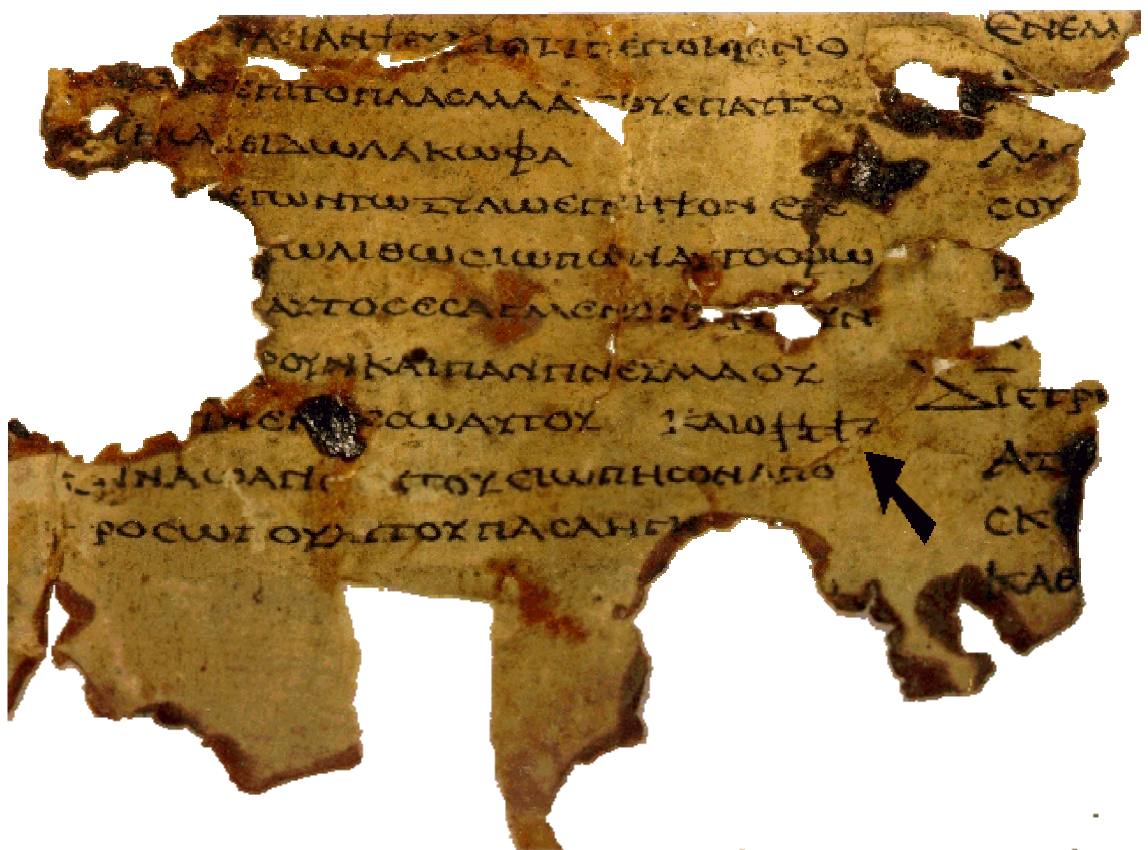 ΟΤΙ ΠΕΠΟΙΘΕΝ Ο
ΕΠΙ ΤΟ ΠΛΑϹΜΑ ΑΥΤΟΥ ΕΠ ΑΥΤΟ
ΕΙΔΩΛΑ ΚΩΦΑ
ΕΓΩΝ ΤΩ ΞΥΛΩ ΕΓΝΗΨΟΝ ΕΞΕ
ΤΩ ΛΙΘΩ ϹΙΩΠΩΝ ΑΥΤΟ ΦΩ
ΑΥΤΟ ϹΕϹΑΓΜΕΝΟΝ
ΡΟΥΝ ΚΑΙ ΠΑΝ ΠΝΕΥΜΑ ΟΥΚ
ΑΥΤΟΥ ΚΑΙ Ο 𐤉𐤄𐤅𐤄
ΝΑΩ ΑΓΙ ΤΟΥ ϹΙΩΠΗϹΟΝ ΑΠΟ
ΡΟϹΩΠΟΥ ΑΥΤΟΥ ΠΑϹΑ Η ΓΗ
ΕΝ ΕΜ
ΛΑ
ϹΟΥ
ΔΙΕΤΡ
ΑΤ
ϹΚ
ΚΑΘ